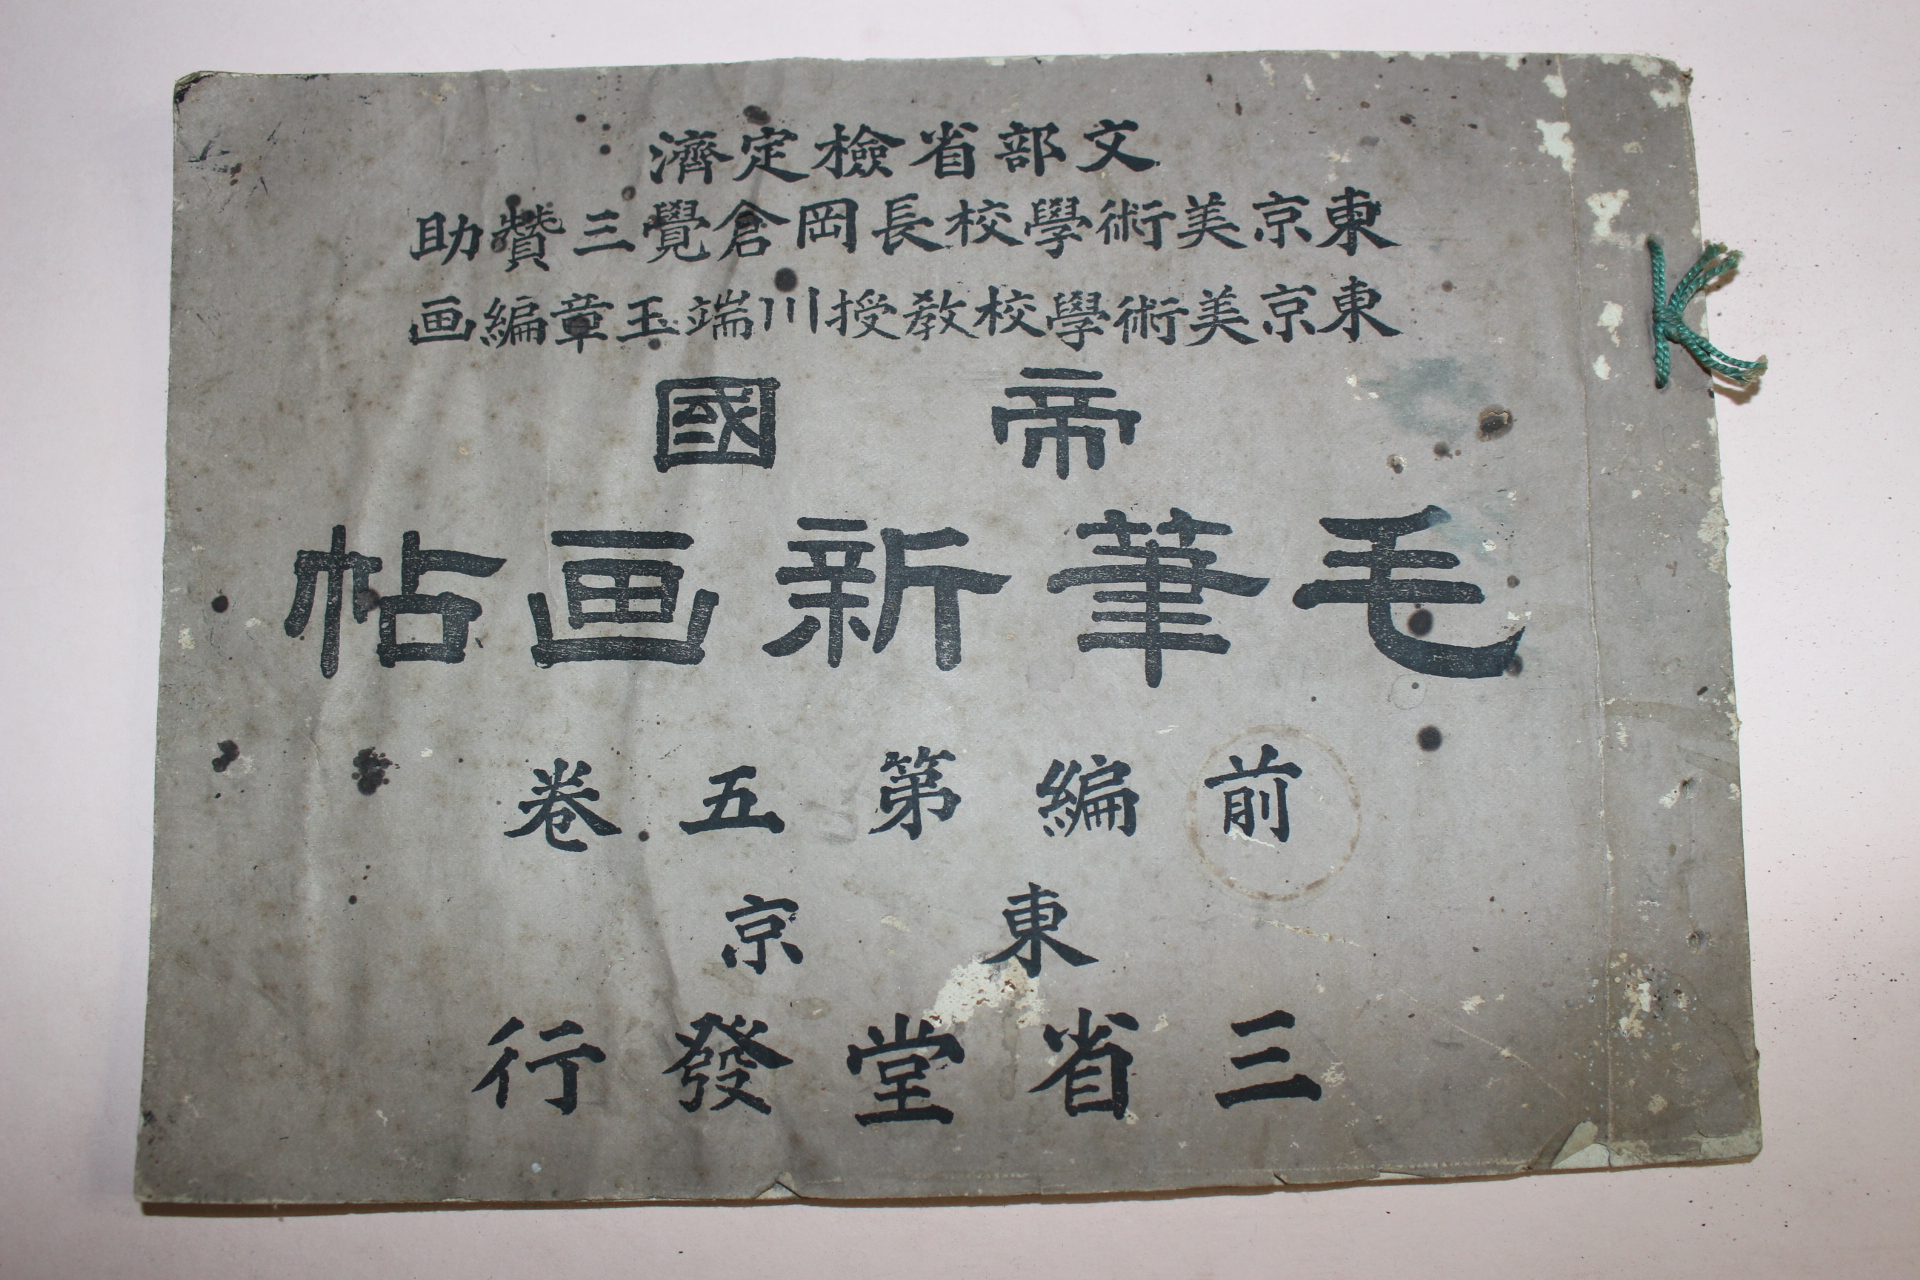 文部省檢定濟
東京美術學校長岡倉覺三賛助
東京美術學校教授川端玉章編画
帝國
毛筆新画帖
前編第五巻
東京
三省堂發行